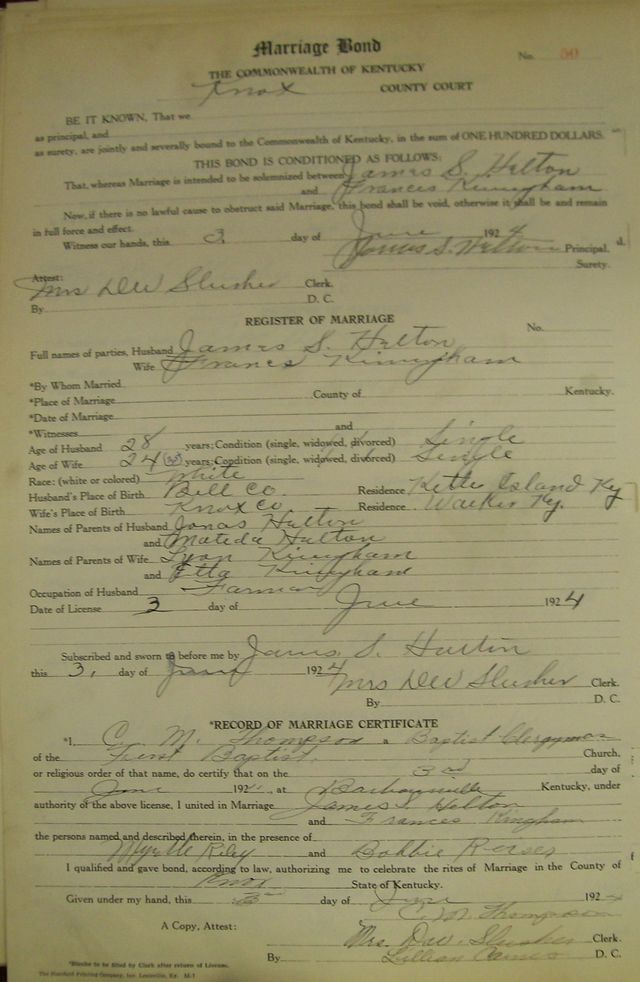 Marriage Bond
No. 50
THE COMMONWEALTH OF KENTUCKY
Knox COUNTY COURT
BE IT KNOWN, That we
as principal, and
as surety, are jointly and severally bound to the Commonwealth of Kentucky, in the sum of ONE HUNDRED DOLLARS.
THIS BOND IS CONDITIONED AS FOLLOWS:
That, whereas Marriage is intended to be solemnized between James S. Helton
and Frances Kiningham
Now, if there is no lawful cause to obstruct said Marriage, this bond shall be void, otherwise it shall be and remain
in full force and effect.
Witness our hands, this 3. day of June 1924
James S. Helton Principal.
Surety.
Attest:
Mrs DW Slusher Clerk.
By D. C.
REGISTER OF MARRIAGE
No.
Full names of parties, Husband James S. Helton
Wife Frances Kiningham
*By Whom Married
*Place of Marriage County of Kentucky.
*Date of Marriage
*Witnesses and
Age of Husband 28 years; Condition (single, widowed, divorced) Single
Age of Wife 24 years; Condition (single, widowed, divorced) Single
Race: (white or colored) White
Husband's Place of Birth Bell Co. Residence Kettle Island Ky
Wife's Place of Birth Knox Co Residence Walker Ky.
Names of Parents of Husband Jonas Hulton
and Matilda Hulton
Names of Parents of Wife Lyon Kiningham
and Etta Kiningham
Occupation of Husband Farmer
Date of License 3 day of June 1924
Subscribed and sworn to before me by James S. Hulton
this 3, day of June 1924
Mrs DW Slusher Clerk.
By D. C.
*RECORD OF MARRIAGE CERTIFICATE
*I, C. M. Thompson a Baptist Clergyman
of the First Baptist Church,
or religious order of that name, do certify that on the 3rd day of
June 192 , at Barbourville Kentucky, under
authority of the above license, I united in Marriage James S. Helton
and Frances Kingham
the persons named and described therein, in the presence of
Myrtle Riley and Bobbie Reeser
I qualified and gave bond, according to law, authorizing me to celebrate the rites of Marriage in the County of
Knox State of Kentucky.
Given under my hand, this 3rd day of June 192
C. M. Thompson
A Copy, Attest:
Mrs. D.W. Slusher Clerk.
By Lillian D. C.
*Blanks to be filled by Clerk after return of License.
The Standard Printing Company, Inc. Louisville, Ky. M-7